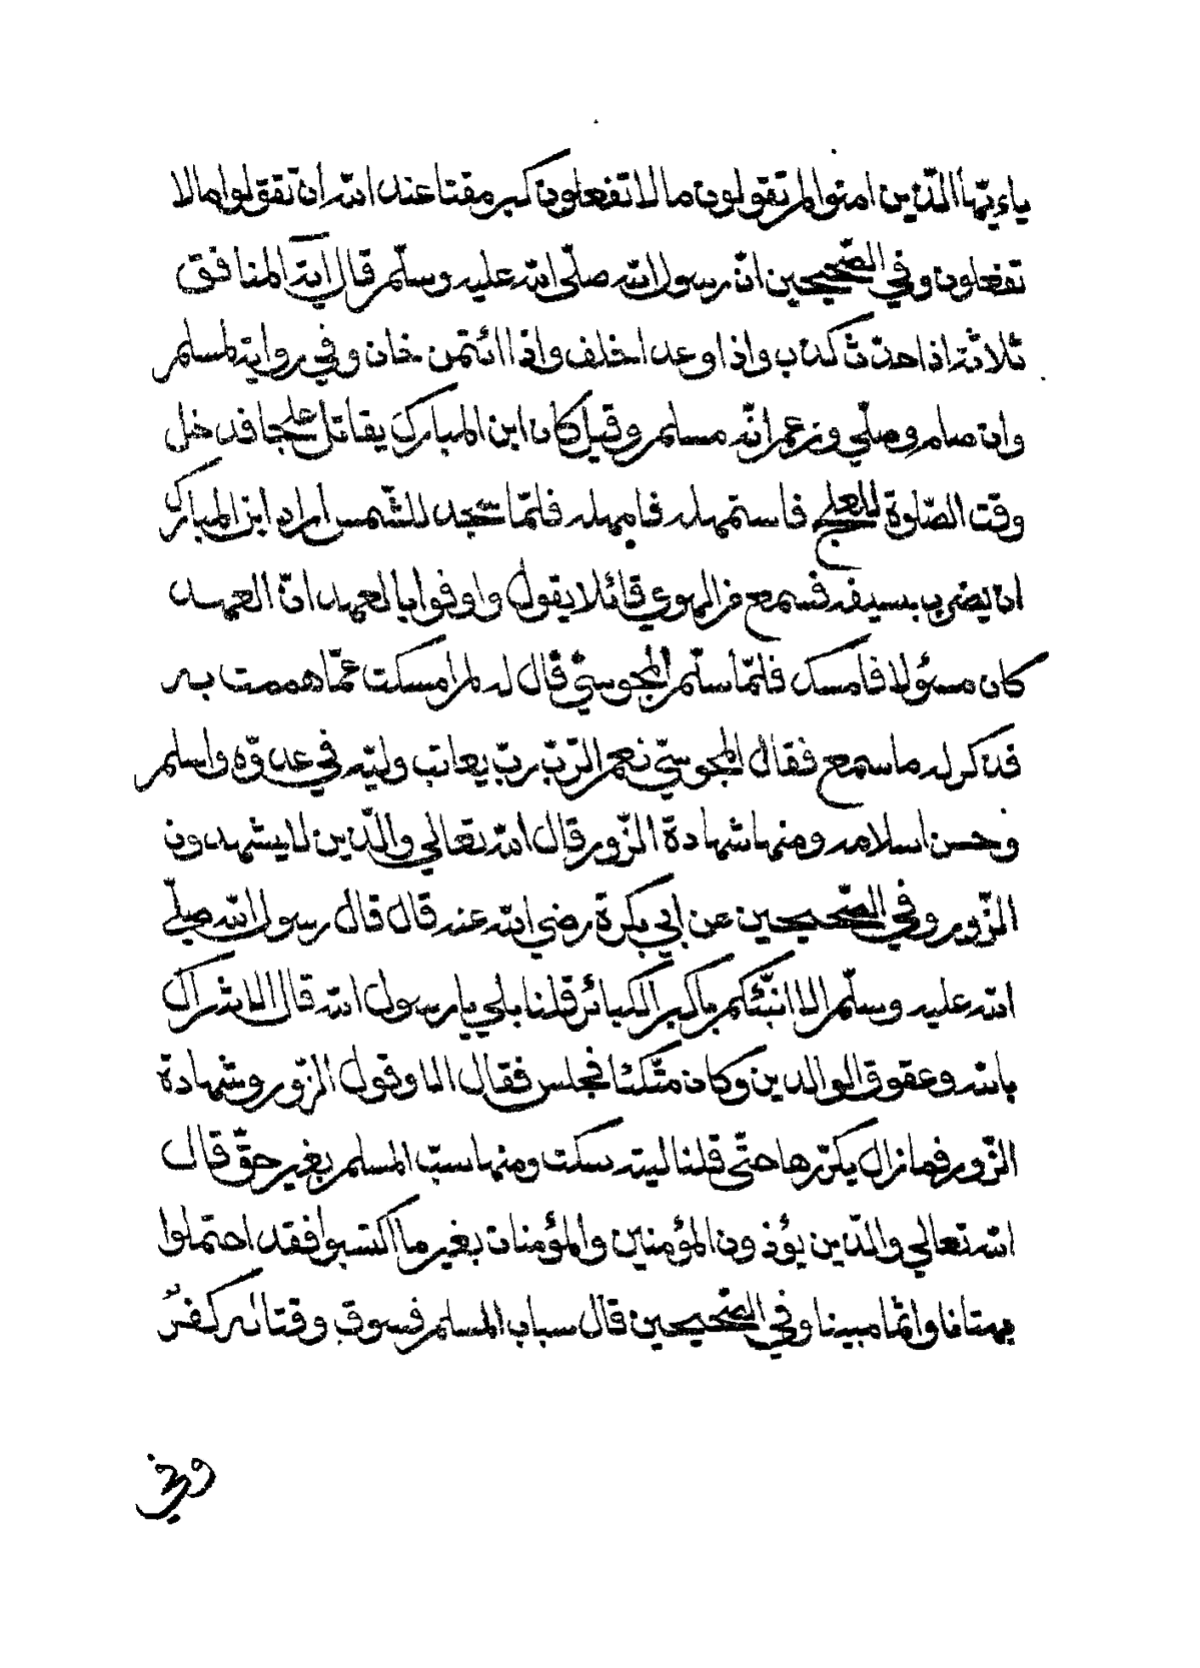 ياءيّها الّذين امنوا لم تقولون ما لا تفعلون كبر مقتا عند الله ان تقولوا ما لا
تفعلون وفي الصّحيحين انّ رسول الله صلّى الله عليه وسلّم قال آية المنافق
ثلاثة اذا حدّث كذب واذا وعد اخلف واذا ائتمن خان وفي رواية لمسلم
وان صام وصلّي وزعم انّه مسلم وقيل كان ابن المبارك يقاتل علجا فدخل
وقت الصّلوة للعلج فاستمهله فامهله فلمّا سجد للشّمس اراد ابن المبارك
ان يضرب بسيفه فسمع من الهوي قائلا يقول واوفوا بالعهد انّ العهد
كان مسئولا فامسك فلمّا سلّم المجوسيّ قال له لم امسكت عمّا هممت به
فذكر له ما سمع فقال المجوسيّ نعم الربّ ربّ يعاتب وليّه في عدوّه واسلم
وحسن اسلامه ومنها شهادة الزّور قال الله تعالي والّذين لا يشهدون
الزّور وفي الصّحيحين عن ابي بكرة رضي الله عنه قال قال رسول الله صلّي
الله عليه وسلّم الا انبّئكم باكبر الكبائر قلنا بلي يا رسول الله قال الاشراك
بالله وعقوق الوالدين وكان متّكئا فجلس فقال الا وقول الزّور وشهادة
الزّور فما زال يكرّرها حتّى قلنا ليته سكت ومنها سبّ المسلم بغير حقّ قال
الله تعالي والّذين يؤذون المؤمنين والمؤمنات بغير ما اكتسبوا فقد احتملوا
بهتانا واثما مبينا وفي الصّحيحين قال سباب المسلم فسوق وقتاله كفر
وفي